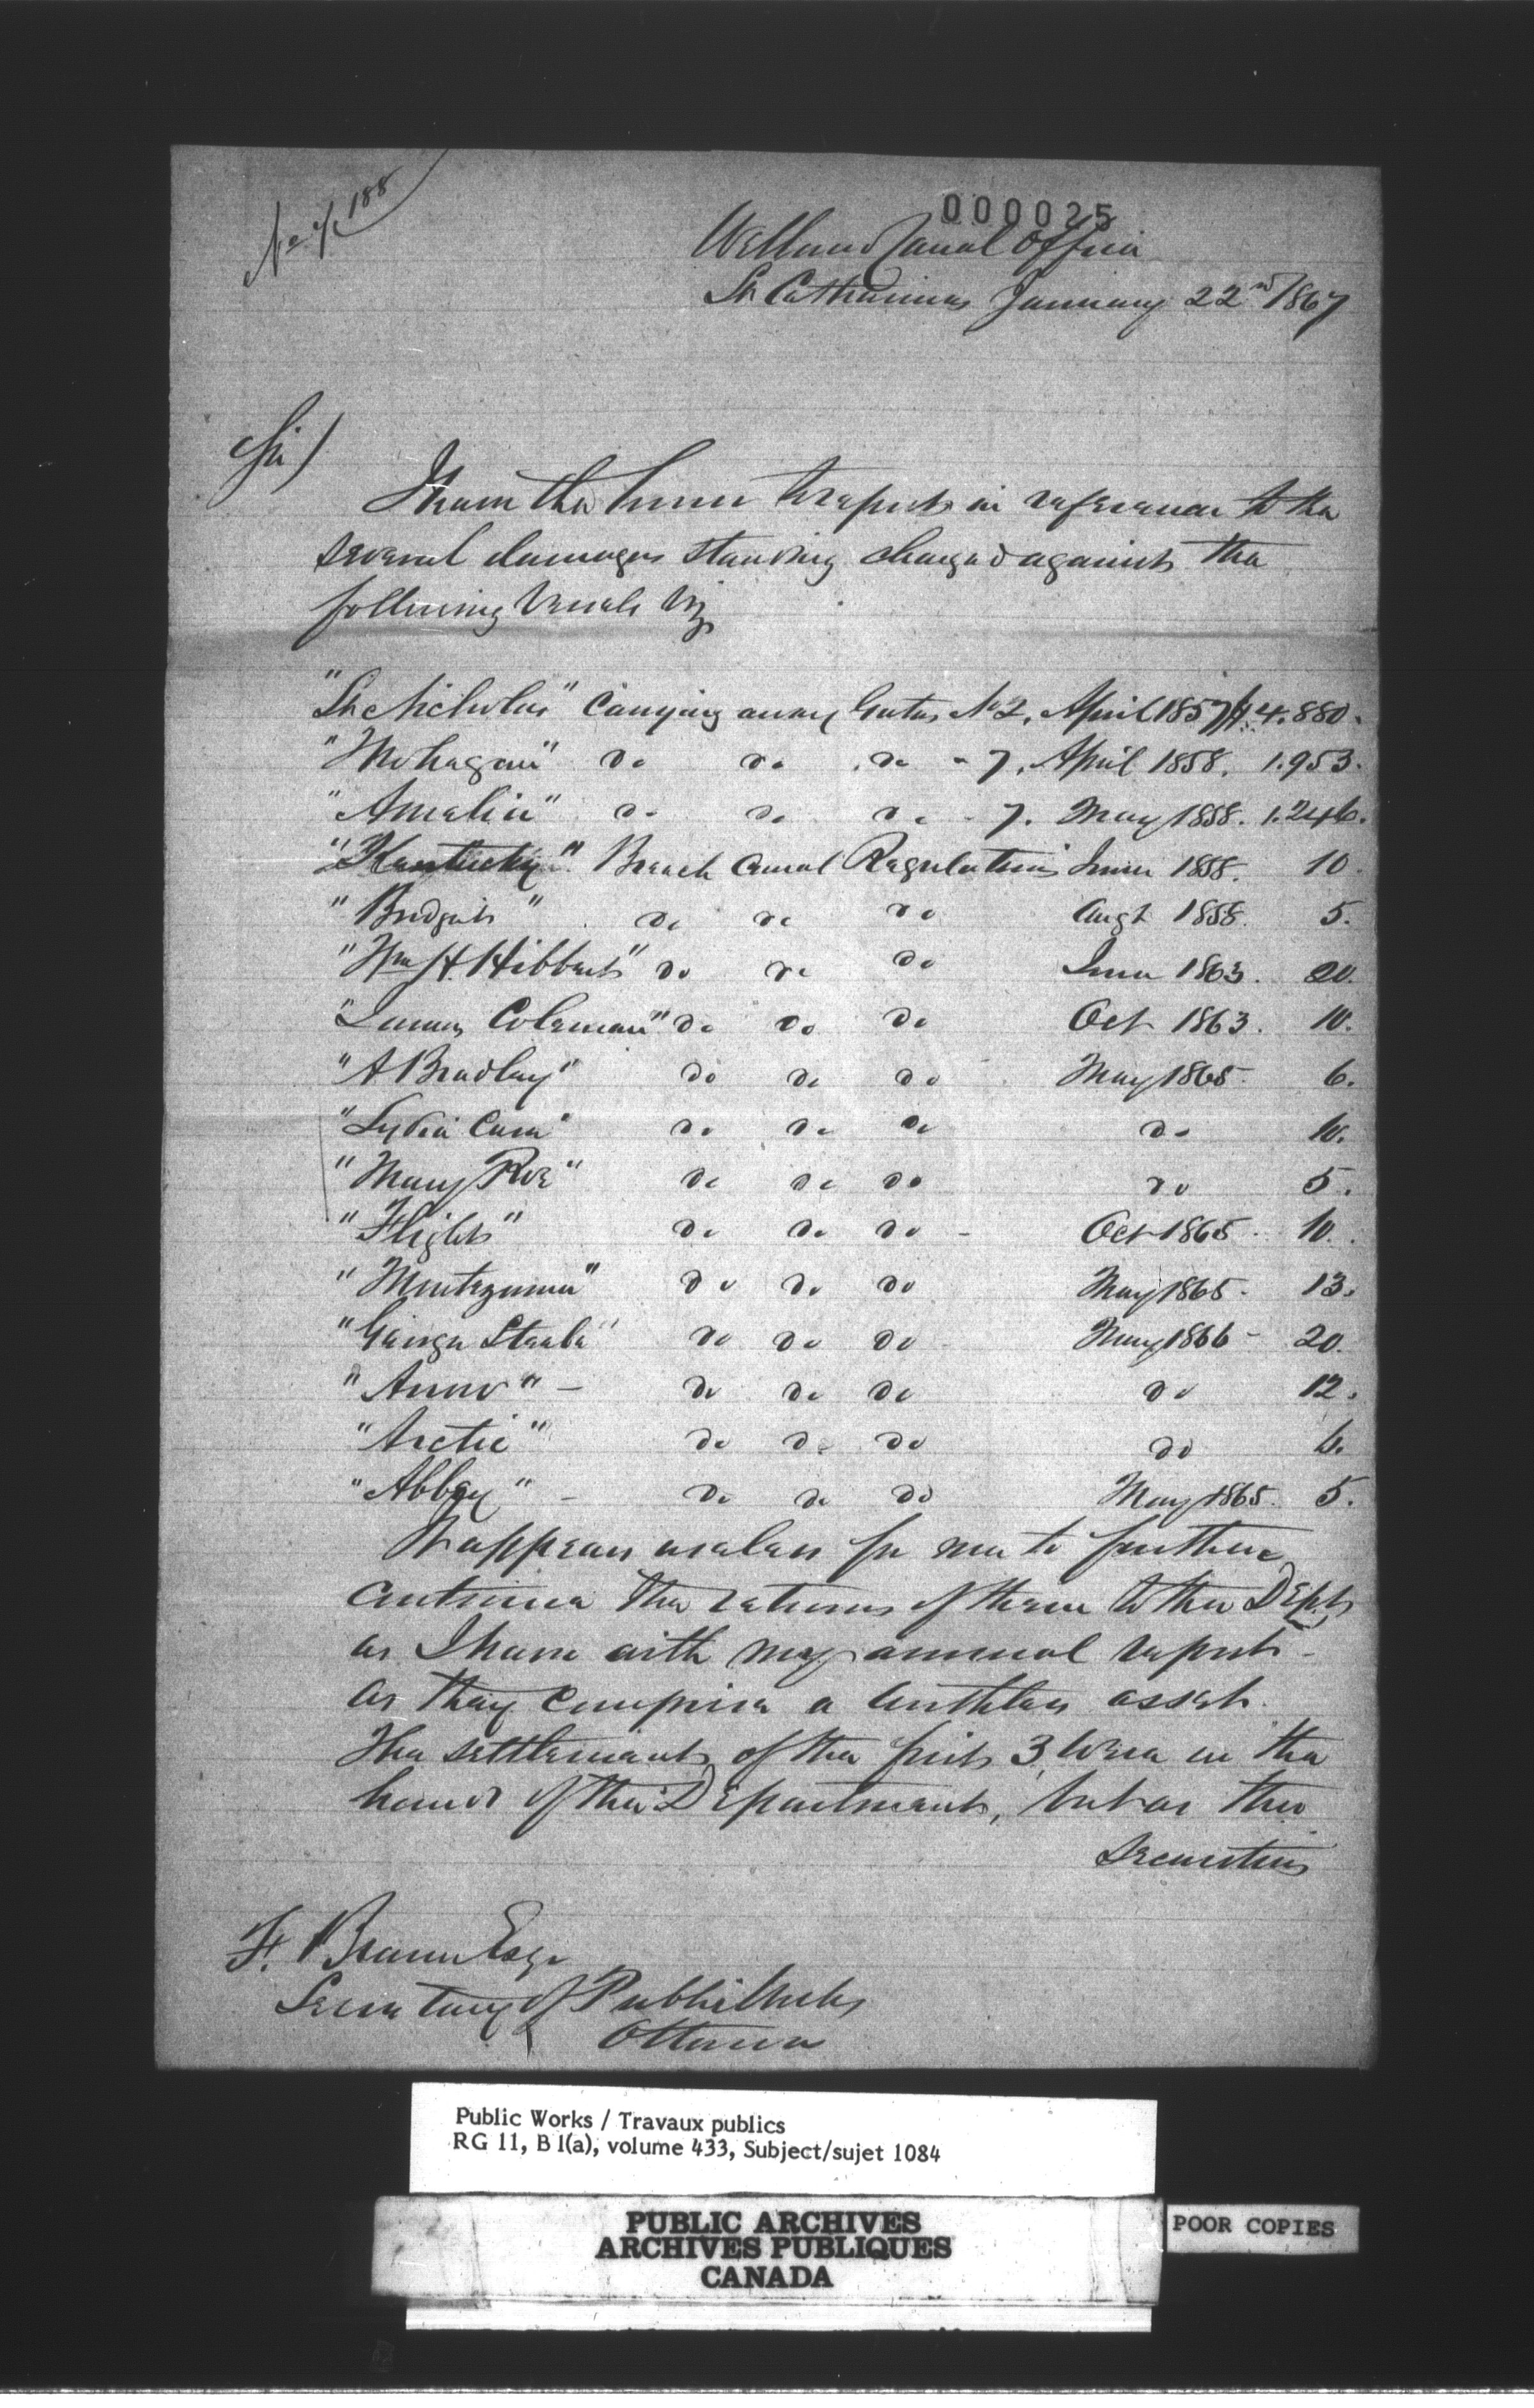 000025
Welland Canal Office
St Catharines January 22nd 1867
Sir)
I have the honor to report in reference to the
several damages standing charged against the
following Vessels Viz
"St Nicholas" Carrying away Gates No 2. April 1857 $4.880.
"Mohegan" Do Do Do - 7. April 1858. 1.953.
"Amelia" Do Do Do - 7. May 1858. 1.246.
"Kentucky" Breach Canal Regulations June 1858. 10.
"Bridget" Do Do Do Augt 1858. 5.
"Wm H. Hibbert" Do Do Do June 1863. 20.
Coleman" Do Do Do Oct 1863. 10.
"A Bradley" Do Do Do May 1865. 6.
"Lydia Case" Do Do Do Do 10.
"Mary Roe" Do Do Do Do 5.
"Flight" Do Do Do - Oct 1865. 10.
"Montezuma" Do Do Do May 1865. 13.
"George Steele" Do Do Do May 1866 - 20.
"Anno" - Do Do Do Do 12.
"Arctic" Do Do Do Do 6.
"Abbey" - Do Do Do May 1865. 5.
It appears useless for me to further
continue the returns of these to the Dept
as I have with my annual report -
as they comprise a worthless asset.
The settlements of the first 3 were in the
hands of the Department, but as the
Securities
F. Braun Esqr
Secretary of Public Works
Ottawa
Public Works / Travaux publics
RG 11, B 1(a), volume 433, Subject/sujet 1084
PUBLIC ARCHIVES
ARCHIVES PUBLIQUES
CANADA
POOR COPIES